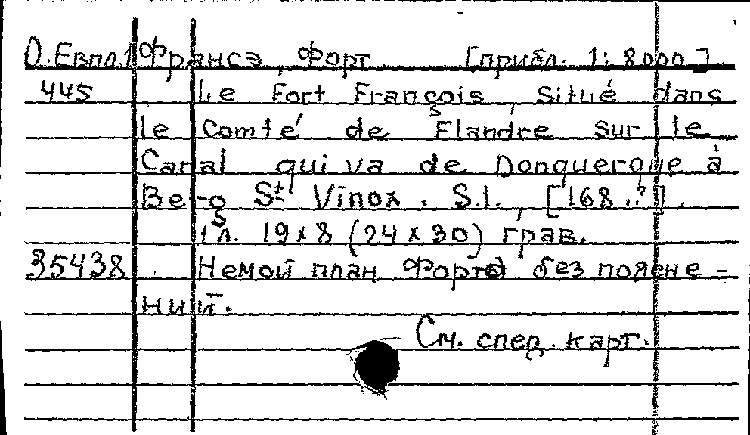 О.Евпл.1 Франсэ, Форт [прибл. 1: 8000]
445 Le Fort François, situé dans
le Comté de Flandre sur le
Canal qui va de Donquerque à
Berg St Vinox. S.l., [168.?].
1 л. 19x8 (24x30) грав.
35438 Немой план Форта без поясне-
ний.
См. спец. карт.